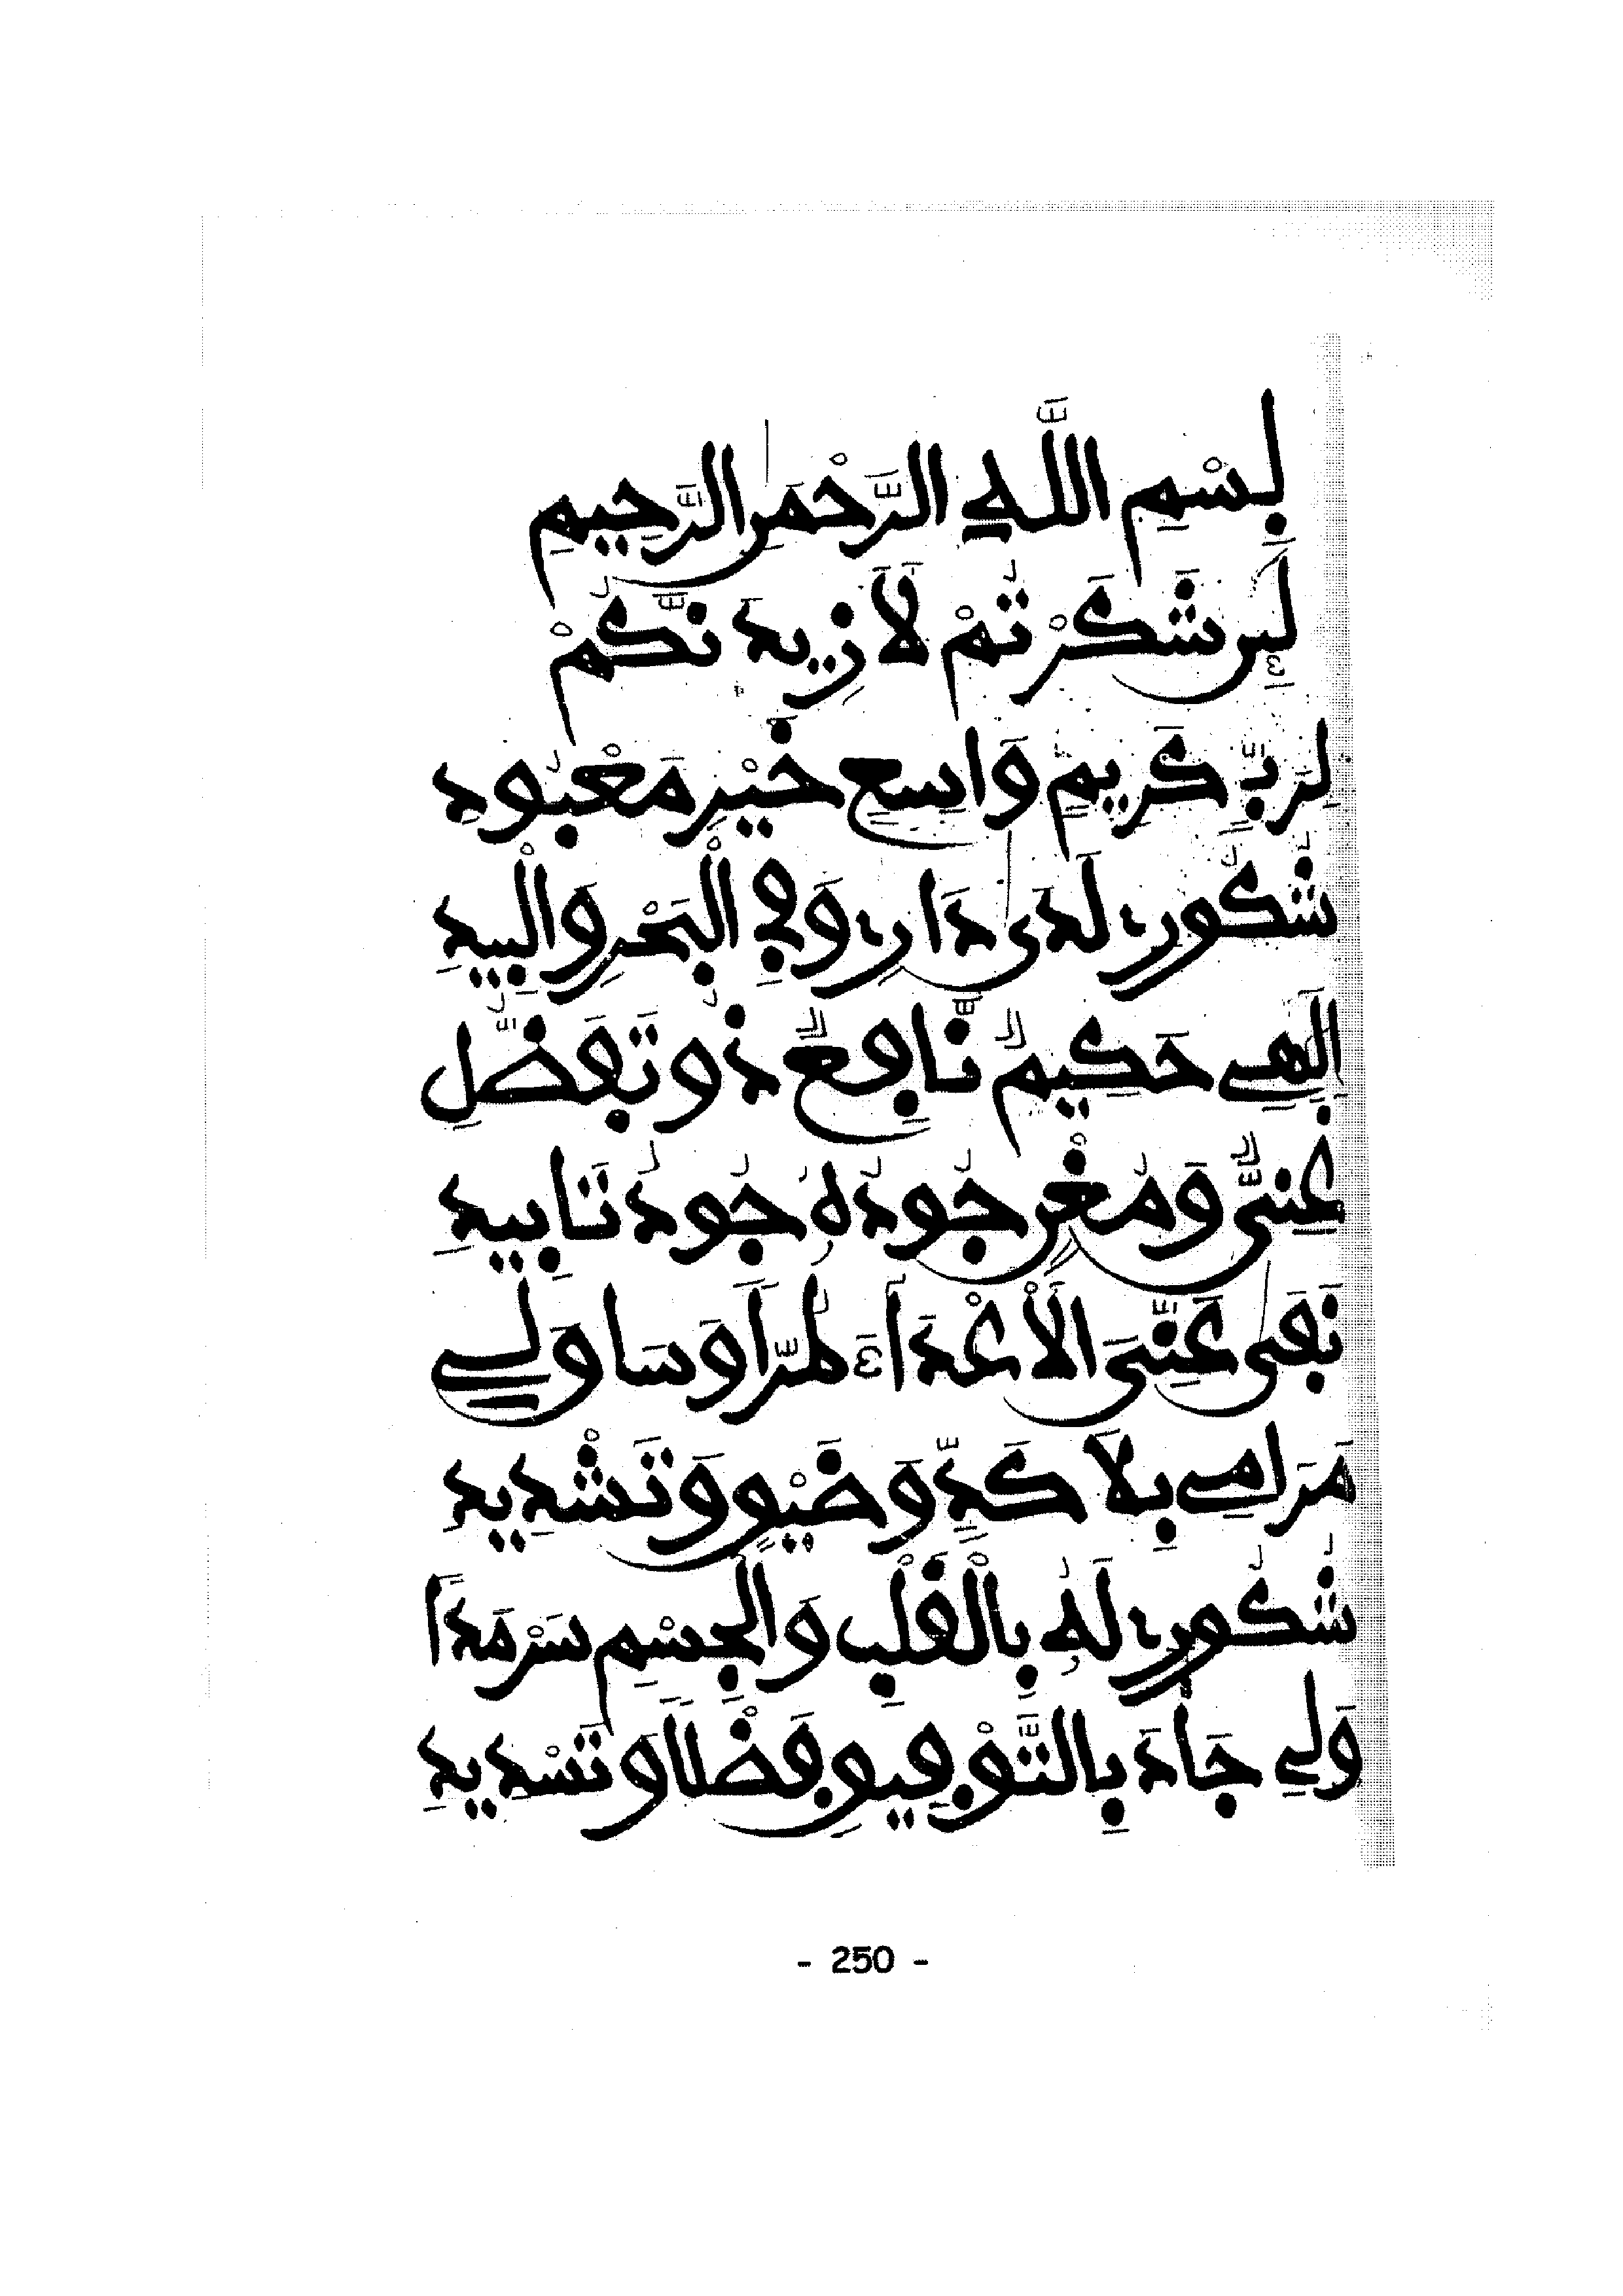 بِسْمِ اللَّهِ الرَّحْمَٰنِ الرَّحِيمِ
لَئِن شَكَرْتُمْ لَأَزِيدَنَّكُمْ
لِرَبٍّ كَرِيمٍ وَاسِعٍ خَيْرِ مَعْبُودِ
شُكُورِے لَدَىٰ دَارِے وَفِي الْبَحْرِ وَالْبِيدِ
إِلَٰهِي حَكِيمٌ نَّافِعٌ ذُو تَفَضُّلِ
غَنِيٌّ وَمُغْنٍ جُودُهُ جُودُ تَابِيدِ
نَفَىٰ عَنِّيَ الْأَعْدَاءَ طُرًّا وَسَاوَ لِي
مَرَامِي بِلَا كَدٍّ وَضَيْقٍ وَتَشْدِيدِ
شُكُورِے لَهُ بِالْقَلْبِ وَالْجِسْمِ سَرْمَدًا
وَلِي جَادَ بِالتَّوْفِيقِ فَضْلًا وَتَسْدِيدِ
- 250 -